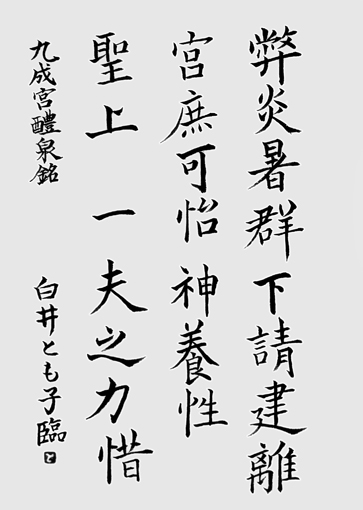 弊炎暑群下請建離
宮庶可怡神養性
聖上一夫之力惜
九成宮醴泉銘
白井とも子臨
と